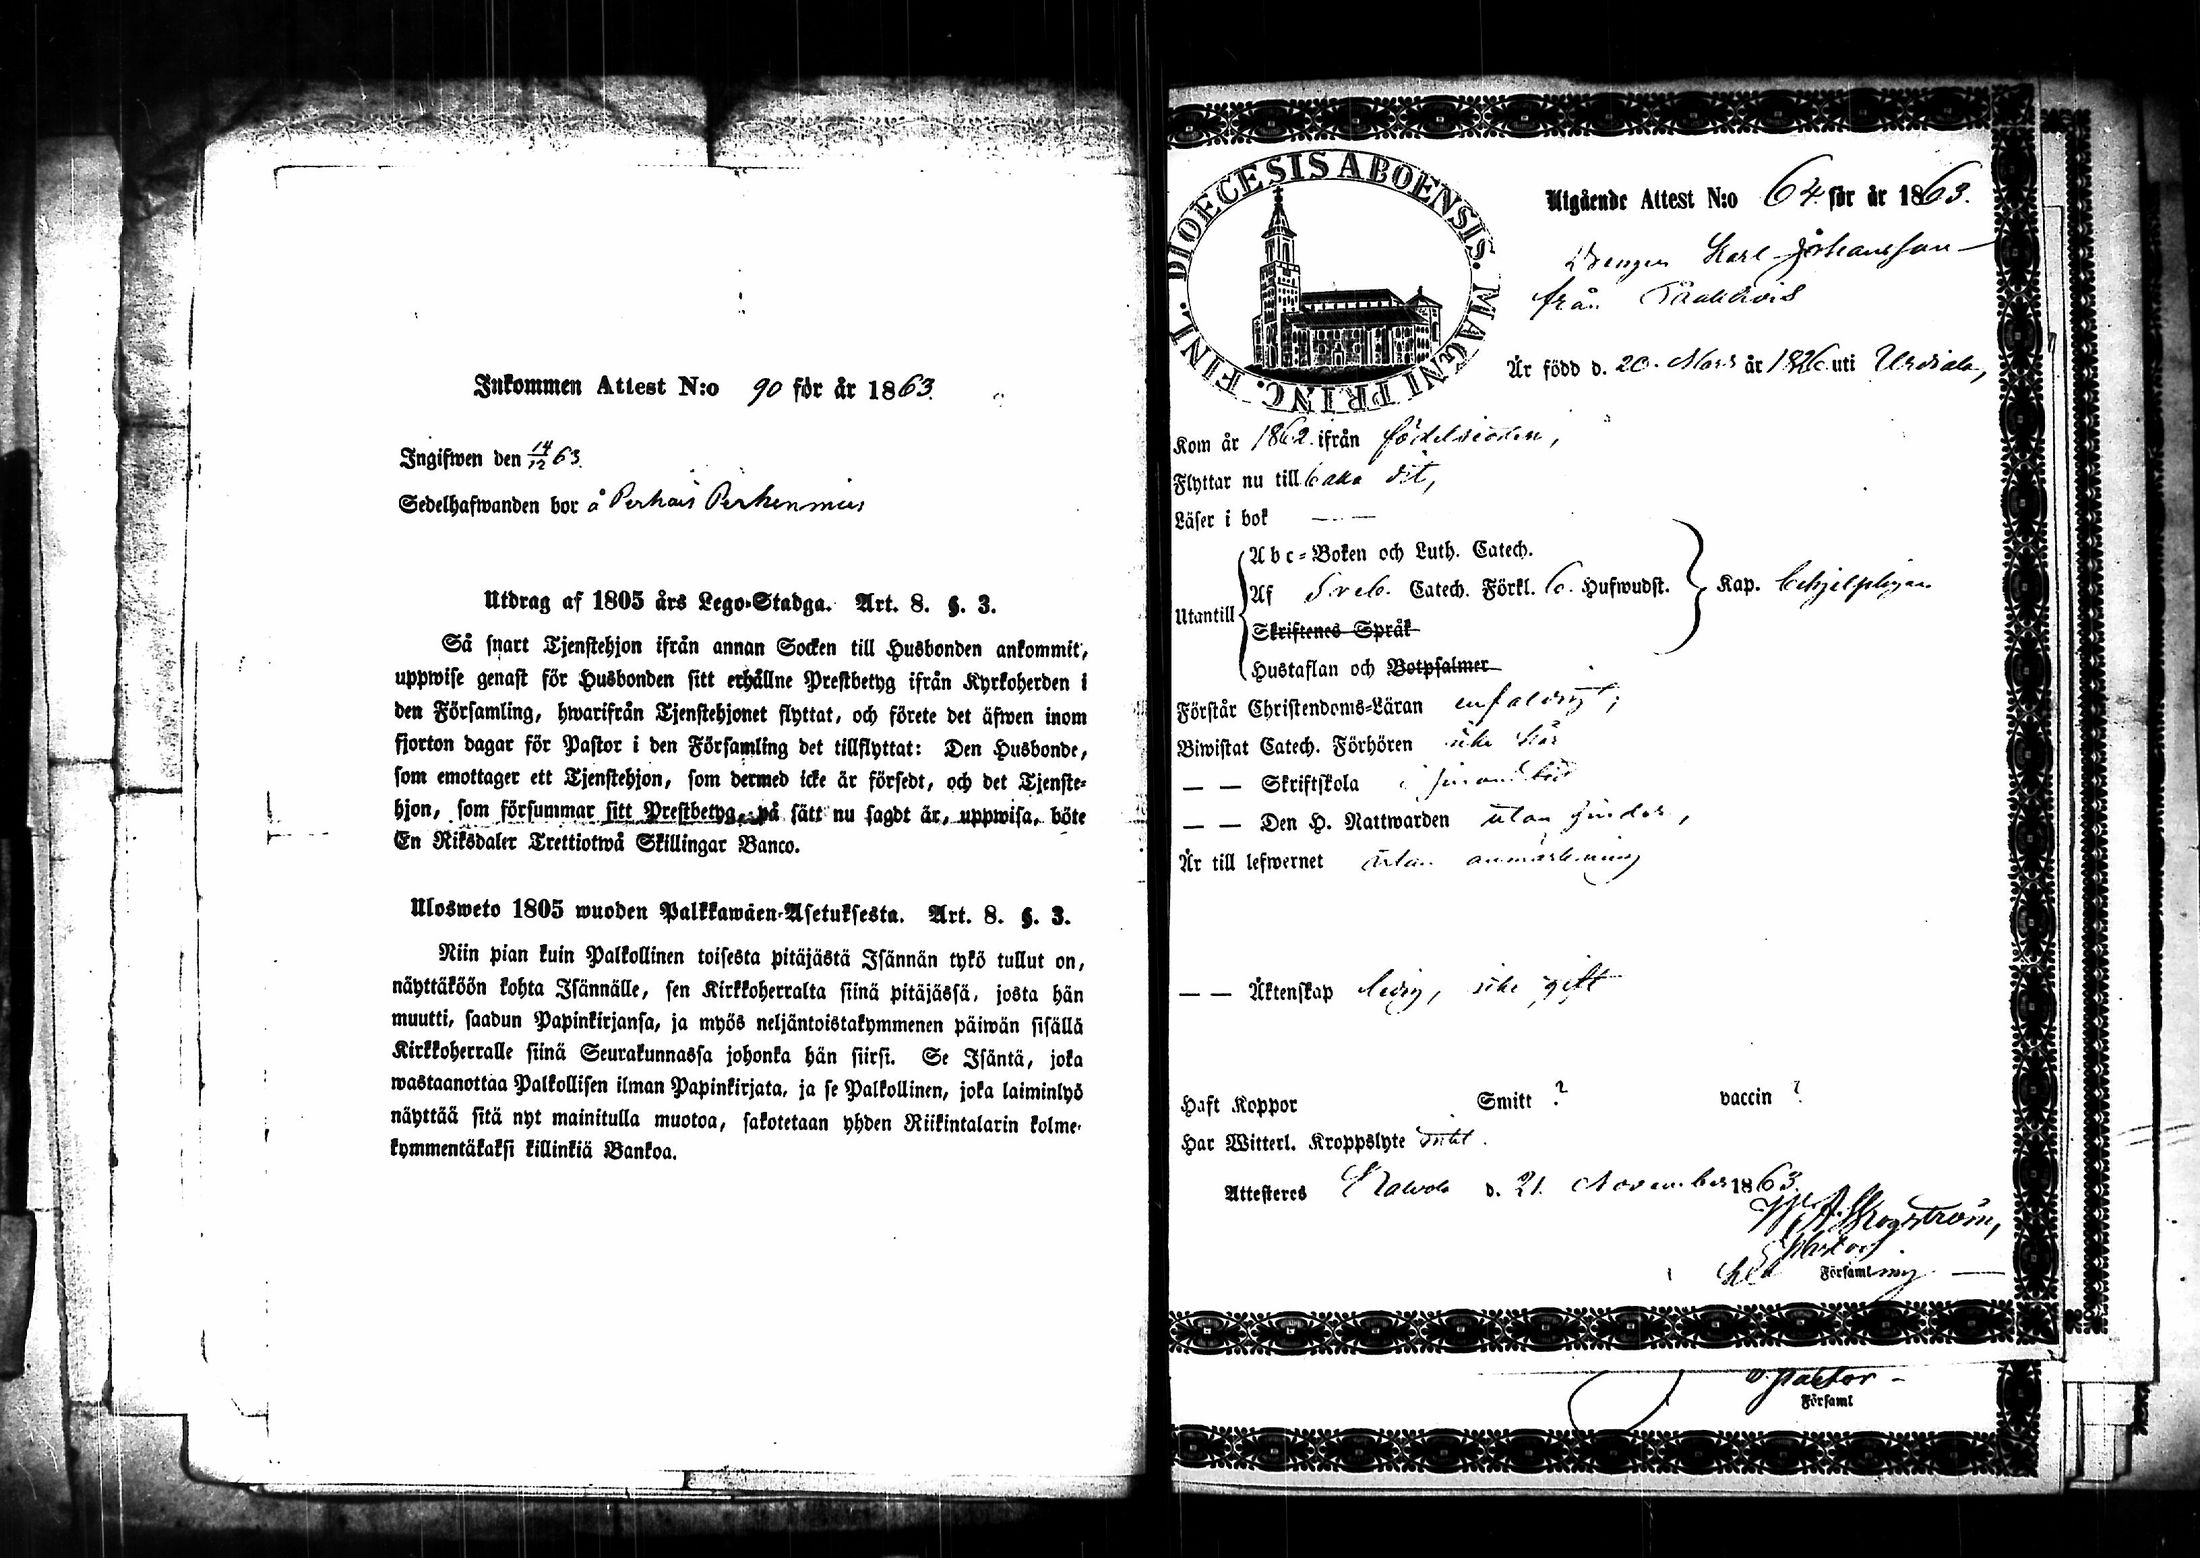 Inkommen Attest N:o 90 för år 1863.
Ingifwen den 14/12 63.
Sedelhafwanden bor å Perhais Perkenmies
Utdrag af 1805 års Lego-Stadga. Art. 8. §. 3.
Så snart Tjenstehjon ifrån annan Socken till Husbonden ankommit,
uppwise genast för Husbonden sitt erhållne Prestbetyg ifrån Kyrkoherden i
den Församling, hwarifrån Tjenstehjonet flyttat, och förete det äfwen inom
fjorton dagar för Pastor i den Församling det tillflyttat: Den Husbonde,
som emottager ett Tjenstehjon, som dermed icke är försedt, och det Tjenste-
hjon, som försummar sitt Prestbetyg, på sätt nu sagdt är, uppwisa, böte
En Riksdaler Trettiotwå Skillingar Banco.
Ulosweto 1805 wuoden Palkkawäen-Asetuksesta. Art. 8. §. 3.
Niin pian kuin Palkollinen toisesta pitäjästä Isännän tykö tullut on,
näyttäköön kohta Isännälle, sen Kirkkoherralta siinä pitäjässä, josta hän
muutti, saadun Papinkirjansa, ja myös neljäntoistakymmenen päiwän sisällä
Kirkkoherralle siinä Seurakunnassa johonka hän siirsi. Se Isäntä, joka
wastaanottaa Palkollisen ilman Papinkirjata, ja se Palkollinen, joka laiminlyö
näyttää sitä nyt mainitulla muotoa, sakotetaan yhden Riikintalarin kolme-
kymmentäkaksi killinkiä Bankoa.
FINL. DIOECESIS ABOENSIS. MAGNI PRINC.
Utgående Attest N:o 64 för år 1863.
Drengen Karl Johansson
från
Är född d. 20. Mars år 1826 uti Urdiala,
Kom år 1862. ifrån födelseorten,
Flyttar nu till baka dit,
Läser i bok — —
Utantill
Abc-Boken och Luth. Catech.
Af Sveb. Catech. Förkl. 6. Hufwudst.
Skriftenes Språk
Hustaflan och Botpsalmer
Kap. behjelpligen
Förstår Christendoms-Läran enfaldigt;
Biwistat Catech. Förhören icke här
— — Skriftskola i
— — Den H. Nattwarden utan hinder,
Är till lefwernet utan anmärkning
— — Äktenskap ledig, icke gift
Haft Koppor Smitt ? vaccin ?
Har Witterl. Kroppslyte intet.
Attesteres Kalvola d. 21. November 1863.
Skogström,
Pastor
i Församling
v. Pastor
Församl